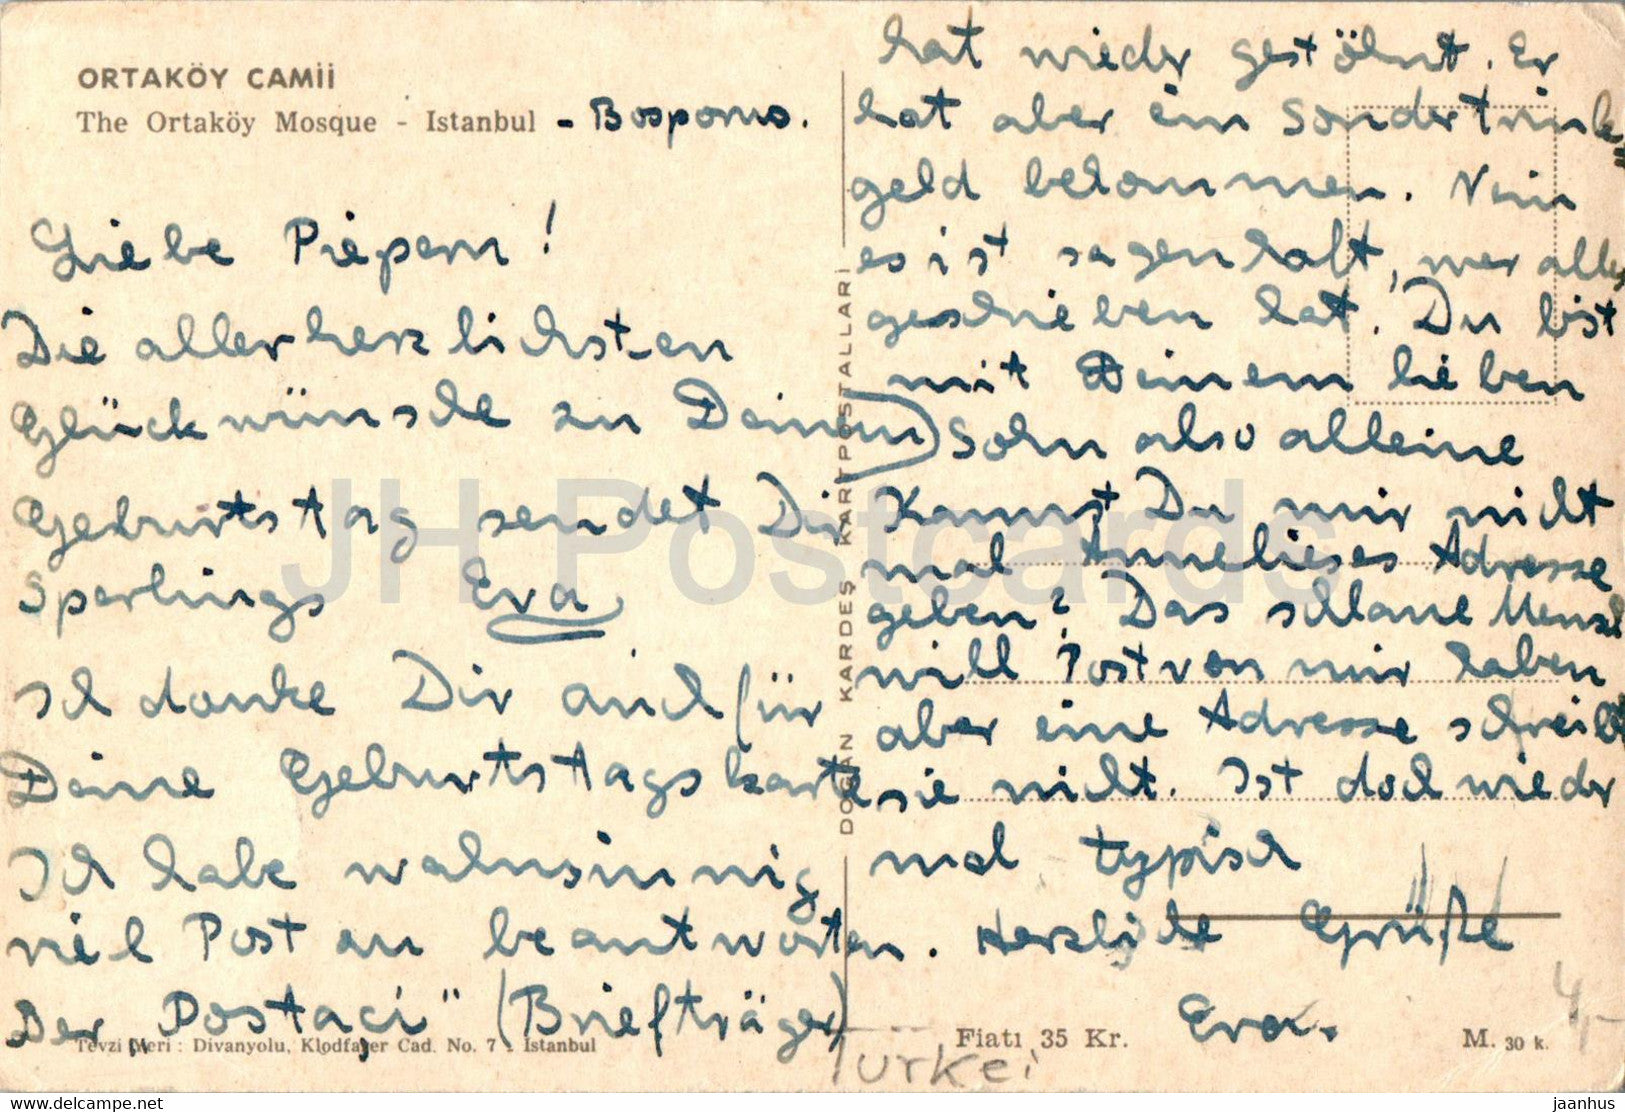 ORTAKÖY CAMİİ
The Ortaköy Mosque - Istanbul - Bosporus.
Liebe Piepern!
Die allerherzlichsten
Glückwünsche zu Deinem
Geburtstag sendet Dir
Sperlings Eva
Ich danke Dir auch für
Deine Geburtstagskarte
Ich habe wahnsinnig
viel Post zu beantworten.
Der „Postaçi" (Briefträger)
hat wieder gestöhnt. Er
hat aber ein Sondertrink=
geld bekommen. Nein
es ist sagenhaft, wer alles
geschrieben hat. Du bist
mit Deinem lieben
Sohn also alleine
Kannst Du mir nicht
mal Annelieses Adresse
geben? Das schlaue Mensch
will Post von mir haben
aber eine Adresse schreibt
sie nicht. Ist doch wieder
mal typisch
Herzliche Grüße
Eva.
DOĞAN KARDEŞ KARTPOSTALLARI
Tevzi Yeri: Divanyolu, Klodfarer Cad. No. 7 - Istanbul
Fiatı 35 Kr.
M. 30 k.
Türkei
4,-
JH Postcards
www.delcampe.net
jaanhus